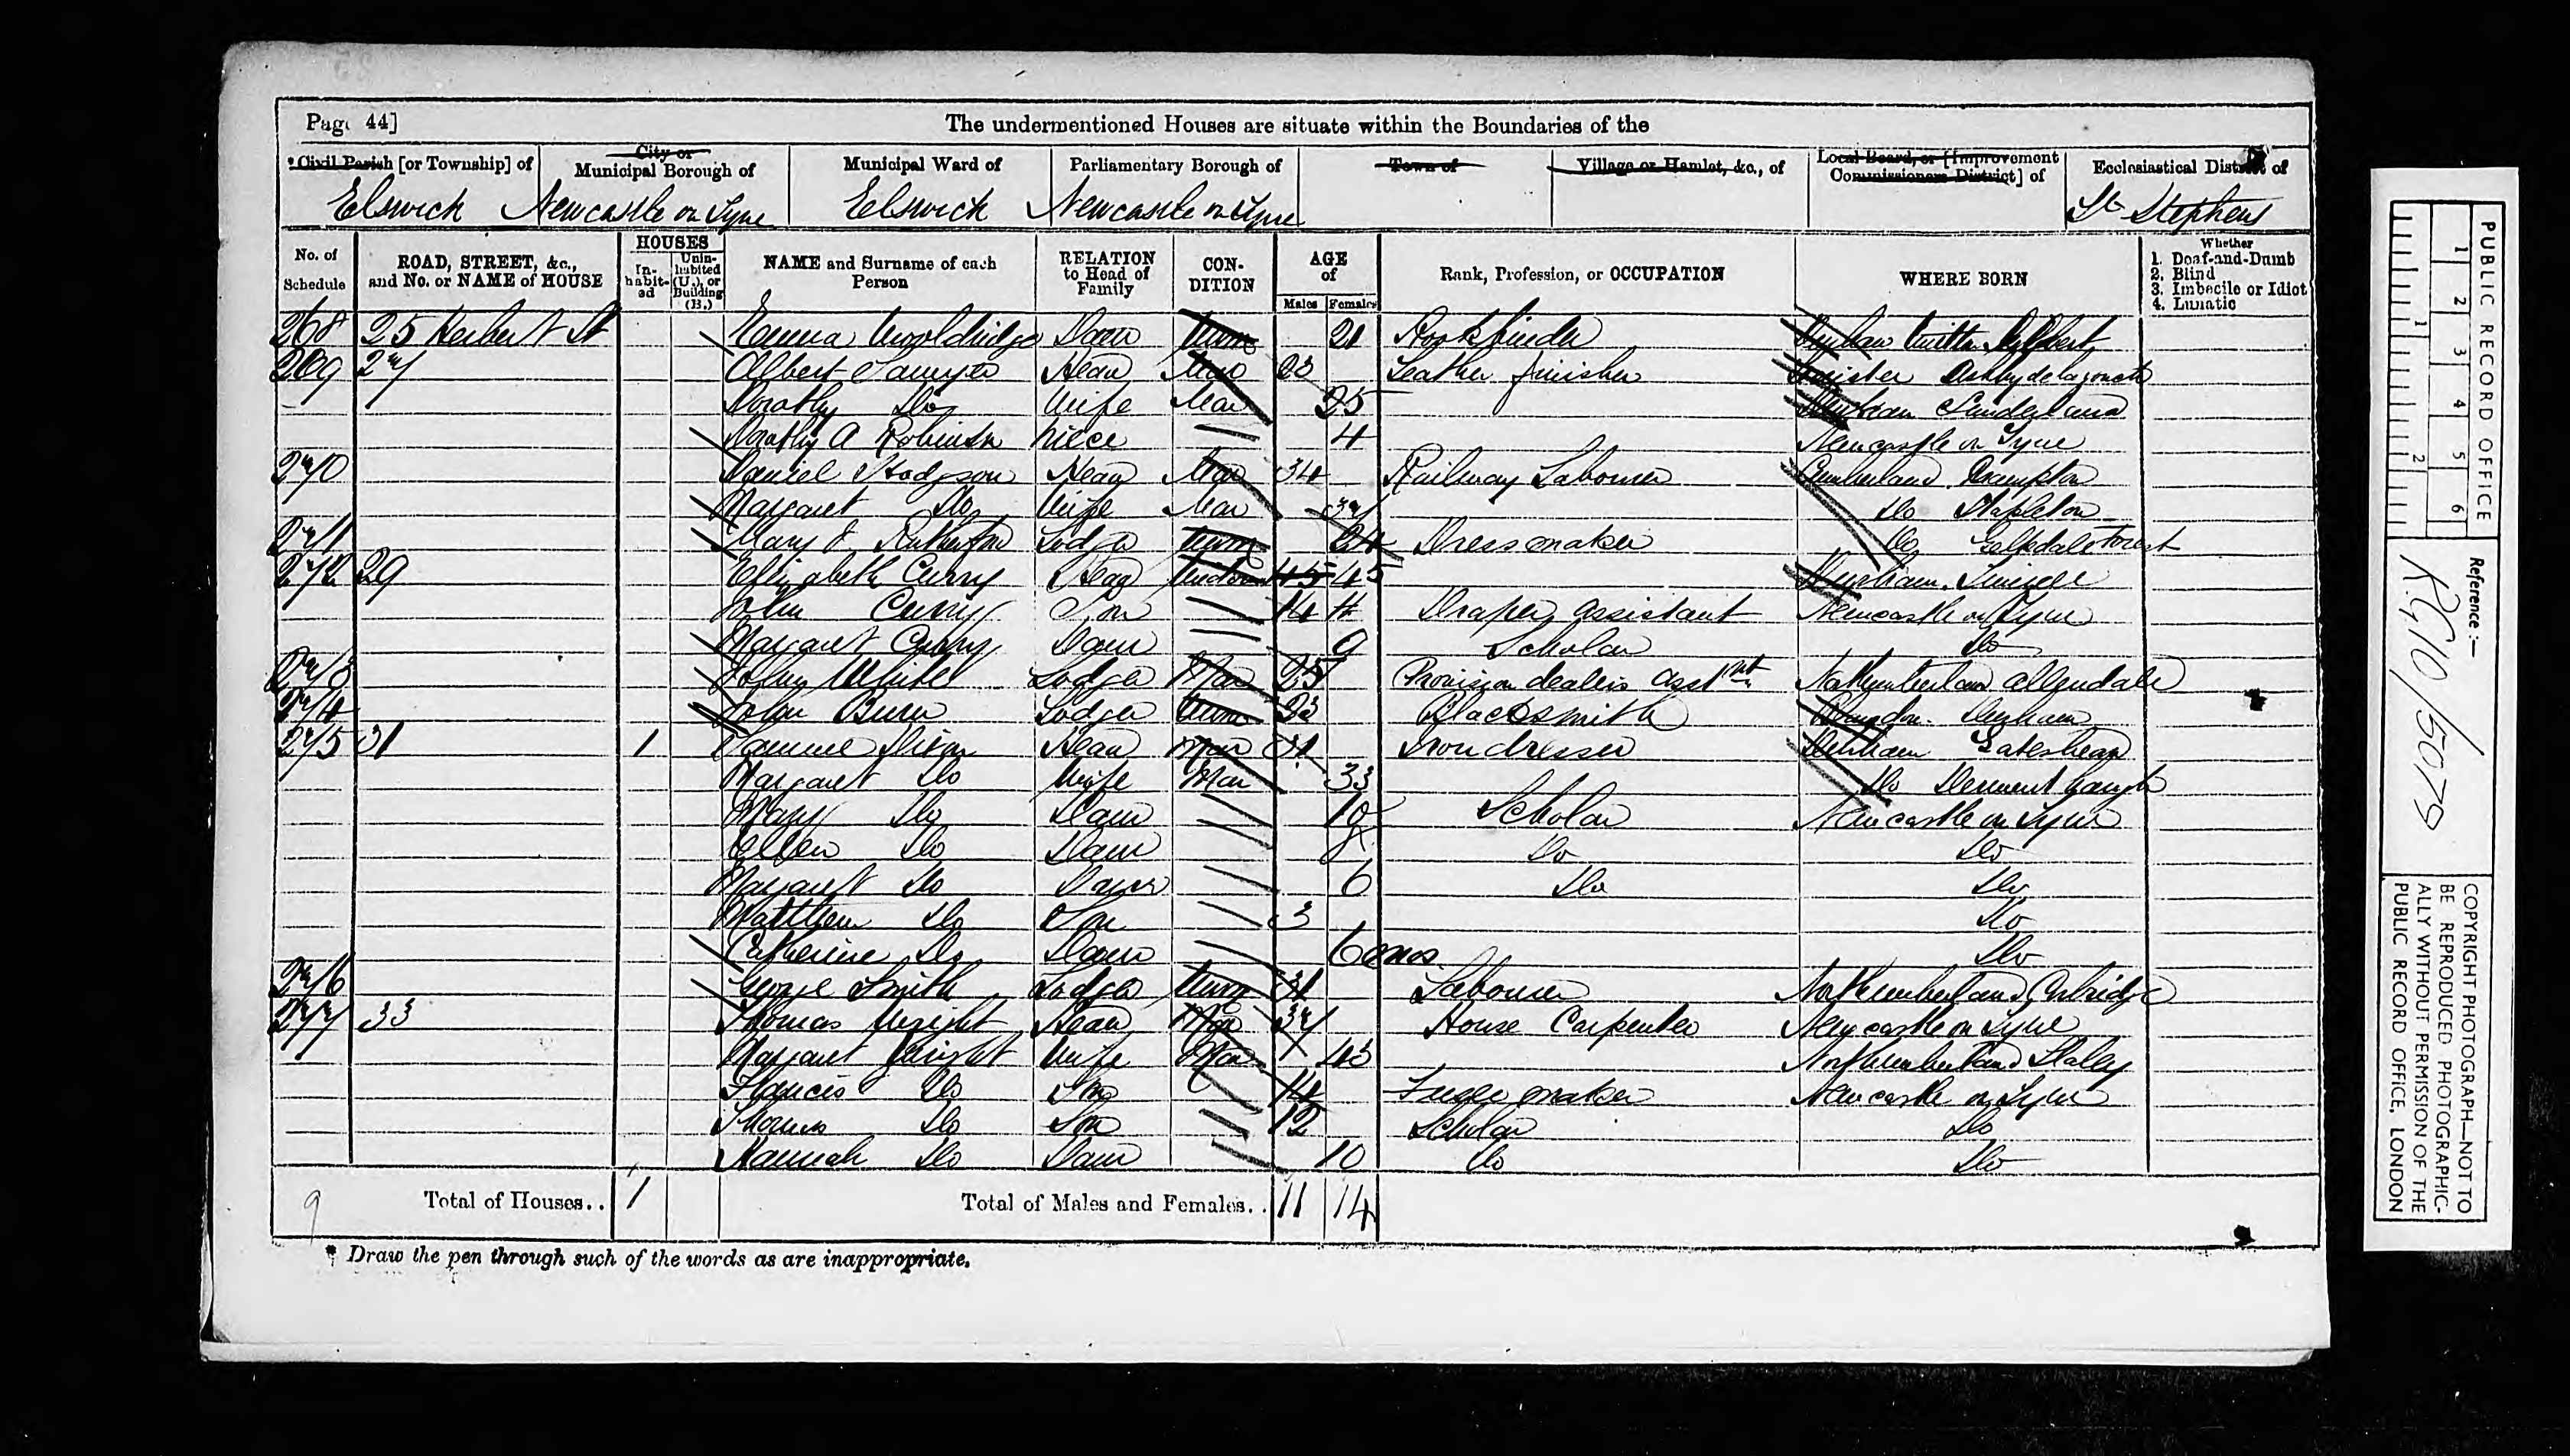 Page 44]
The undermentioned Houses are situate within the Boundaries of the
* Civil Parish [or Township] of
City or Municipal Borough of
Municipal Ward of
Parliamentary Borough of
Town of
Village or Hamlet, &c., of
Local Board, or [Improvement Commissioners District] of
Ecclesiastical District of
Elswick Newcastle on Tyne Elswick Newcastle on Tyne St Stephens
No. of Schedule
ROAD, STREET, &c., and No. or NAME of HOUSE
HOUSES
In-habit-ed
Unin-habited (U.), or Building (B.)
NAME and Surname of each Person
RELATION to Head of Family
CON-DITION
AGE of
Males Females
Rank, Profession, or OCCUPATION
WHERE BORN
Whether
1. Deaf-and-Dumb
2. Blind
3. Imbecile or Idiot
4. Lunatic
268 25 Herbert St Emma Wooldridge Daur Unm 21 Durham
269 27 Albert Head Mar 23 Leather finisher Leicester Ashby de la zouch
Dorothy Do Wife Mar 25 Durham Sunderland
Dorothy A Robinson Niece 4 Newcastle on Tyne
270 Daniel Hodgson Head Mar 34 Railway Labourer Cumberland Brampton
Margaret Do Wife Mar 37 Do Stapleton
271 Mary J Rutherford Lodger Unm 24 Dressmaker Do Forest
272 29 Elizabeth Curry Head Widow 45 45 Durham
John Curry Son 14 14 Draper assistant Newcastle on Tyne
Margaret Curry Daur 9 Scholar Do
273 John White Lodger Mar 25 Provision dealers asstnt Northumberland Allendale
274 John Burn Lodger Unm 23 Blacksmith Durham
275 31 1 Samuel Dixon Head Mar 31 Iron dresser Durham Gateshead
Margaret Do Wife Mar 33 Do Derwent haugh
Mary Do Daur 10 Scholar Newcastle on Tyne
Ellen Do Daur 8 Do Do
Margaret Do Daur 6 Do Do
Matthew Do Son 3 Do
Catherine Do Daur 6 mos Do
276 George Smith Lodger Unm 31 Labourer Northumberland Corbridge
277 33 Thomas Wright Head Mar 37 House Carpenter Newcastle on Tyne
Margaret Wright Wife Mar 43 Northumberland Slaley
Francis Do Son 14 Fuze maker Newcastle on Tyne
Thomas Do Son 12 Scholar Do
Hannah Do Daur 10 Do Do
9 Total of Houses.. 1 Total of Males and Females.. 11 14
* Draw the pen through such of the words as are inappropriate.
PUBLIC RECORD OFFICE
1 2 3 4 5 6
1 2
Reference:-
RG10/5079
COPYRIGHT PHOTOGRAPH—NOT TO
BE REPRODUCED PHOTOGRAPHIC-
ALLY WITHOUT PERMISSION OF THE
PUBLIC RECORD OFFICE, LONDON